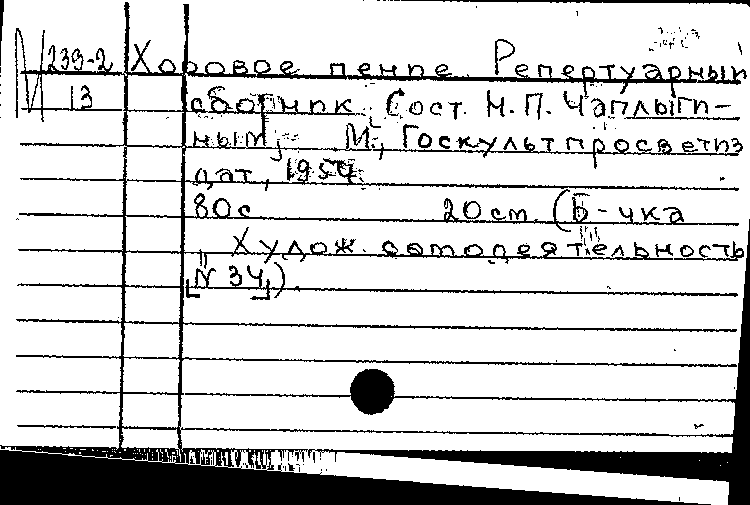 М 239-2 Хоровое пение. Репертуарный
13 сборник. Сост. Н.П. Чаплыги-
ным. М., Госкультпросветиз
дат, 1954.
80с 20см. (Б-чка
"Худож. самодеятельность"
[N 34]).